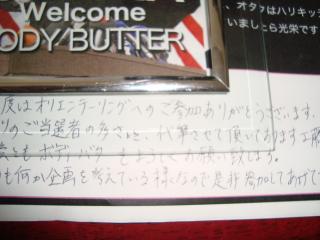 Welcome
ODY BUTTER
、オタはハリキッ
いましたら光栄です
度はオリエンテーリングへのご参加ありがとうございます。
のご当選者の多さに、代筆させて頂いております工藤
ともボディバターをよろしくお願い致します。
も何か企画を考えている様なので是非参加してあげて